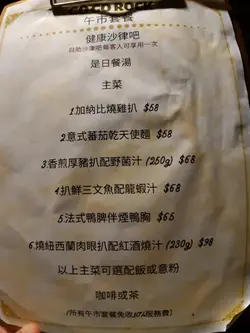 COCO ROCKS
午市套餐
健康沙律吧
自助沙律吧每客人可享用一次
是日餐湯
主菜
1.加納比燒雞扒 $58
2.意式蕃茄乾天使麵 $58
3.香煎厚豬扒配野菌汁 (250g) $68
4.扒鮮三文魚配龍蝦汁 $68
5.法式鴨脾伴煙鴨胸 $65
6.燒紐西蘭肉眼扒配紅酒燒汁 (230g) $98
以上主菜可選配飯或意粉
咖啡或茶
(所有午市套餐免收10%服務費)